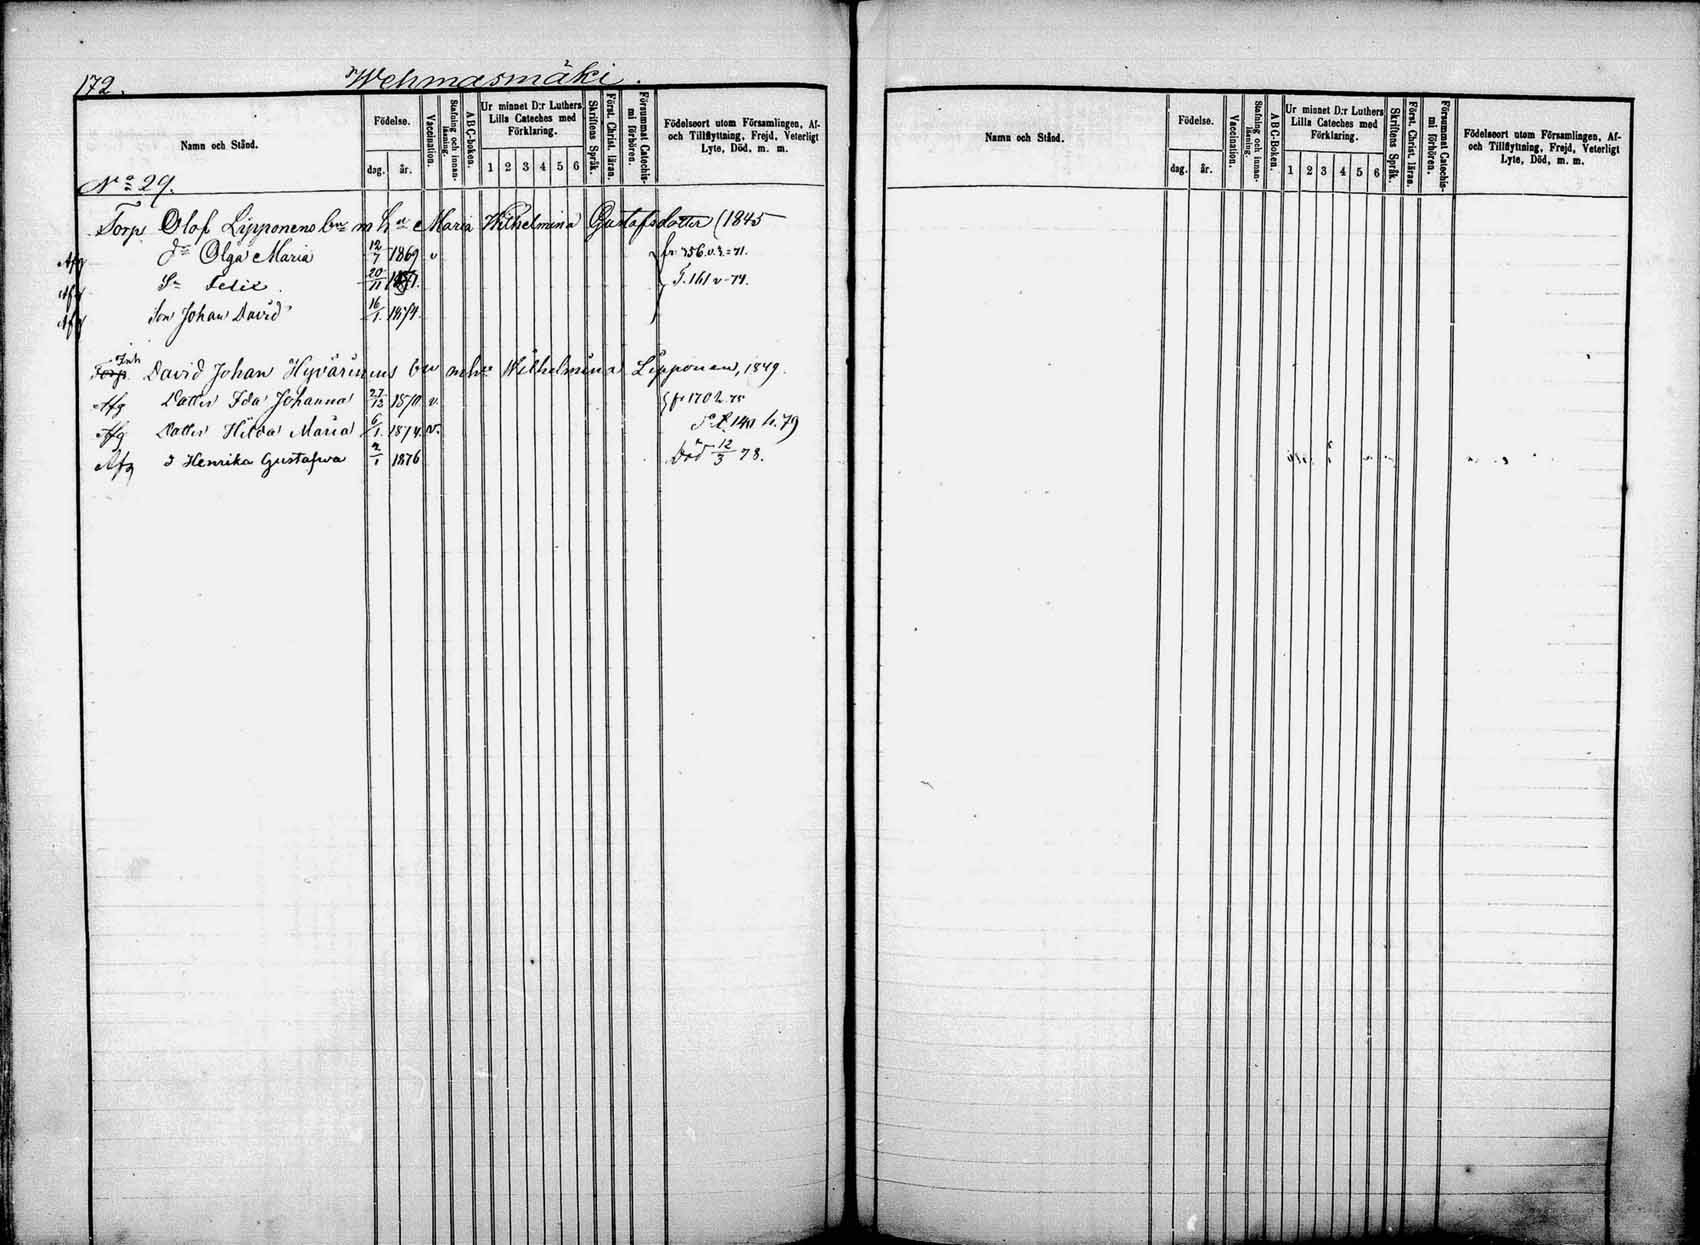 172. Wehmasmäki.
Namn och Stånd. Födelse. dag. år. Vaccination. Stafning och innanläsning. ABC-boken. Ur minnet D:r Luthers Lilla Cateches med Förklaring. 1 2 3 4 5 6 Skriftens Språk. Först. Christ. läran. Försummat Catechismi förhören. Födelseort utom Församlingen, Af- och Tillflyttning, Frejd, Veterligt Lyte, Död, m. m.
No 29.
Torp. Olof Lipponens bn m h u Maria Wilhelmina Gustafsdotter (1845
Afg Dr Olga Maria 12/7 1869 v
Afg Sn Felix. 20/11 T. 161 v-74.
Afg Son Johan David 16/1. 1874.
Inh Torp. David Johan Hyvärinens bn m h u Wilhelmina Lipponen, 1849.
Afg Dotter Ida Johanna 27/12 1870 v.
Afg Dotter Hilda Maria 6/1. 1874. v.
Afg D Henrika Gustafva 2/1 1876 Död 12/3 78.
Namn och Stånd. Födelse. dag. år. Vaccination. Stafning och innanläsning. ABC-Boken. Ur minnet D:r Luthers Lilla Cateches med Förklaring. 1 2 3 4 5 6 Skriftens Språk. Först. Christ. läran. Försummat Catechismi förhören. Födelseort utom Församlingen, Af- och Tillflyttning, Frejd, Veterligt Lyte, Död, m. m.